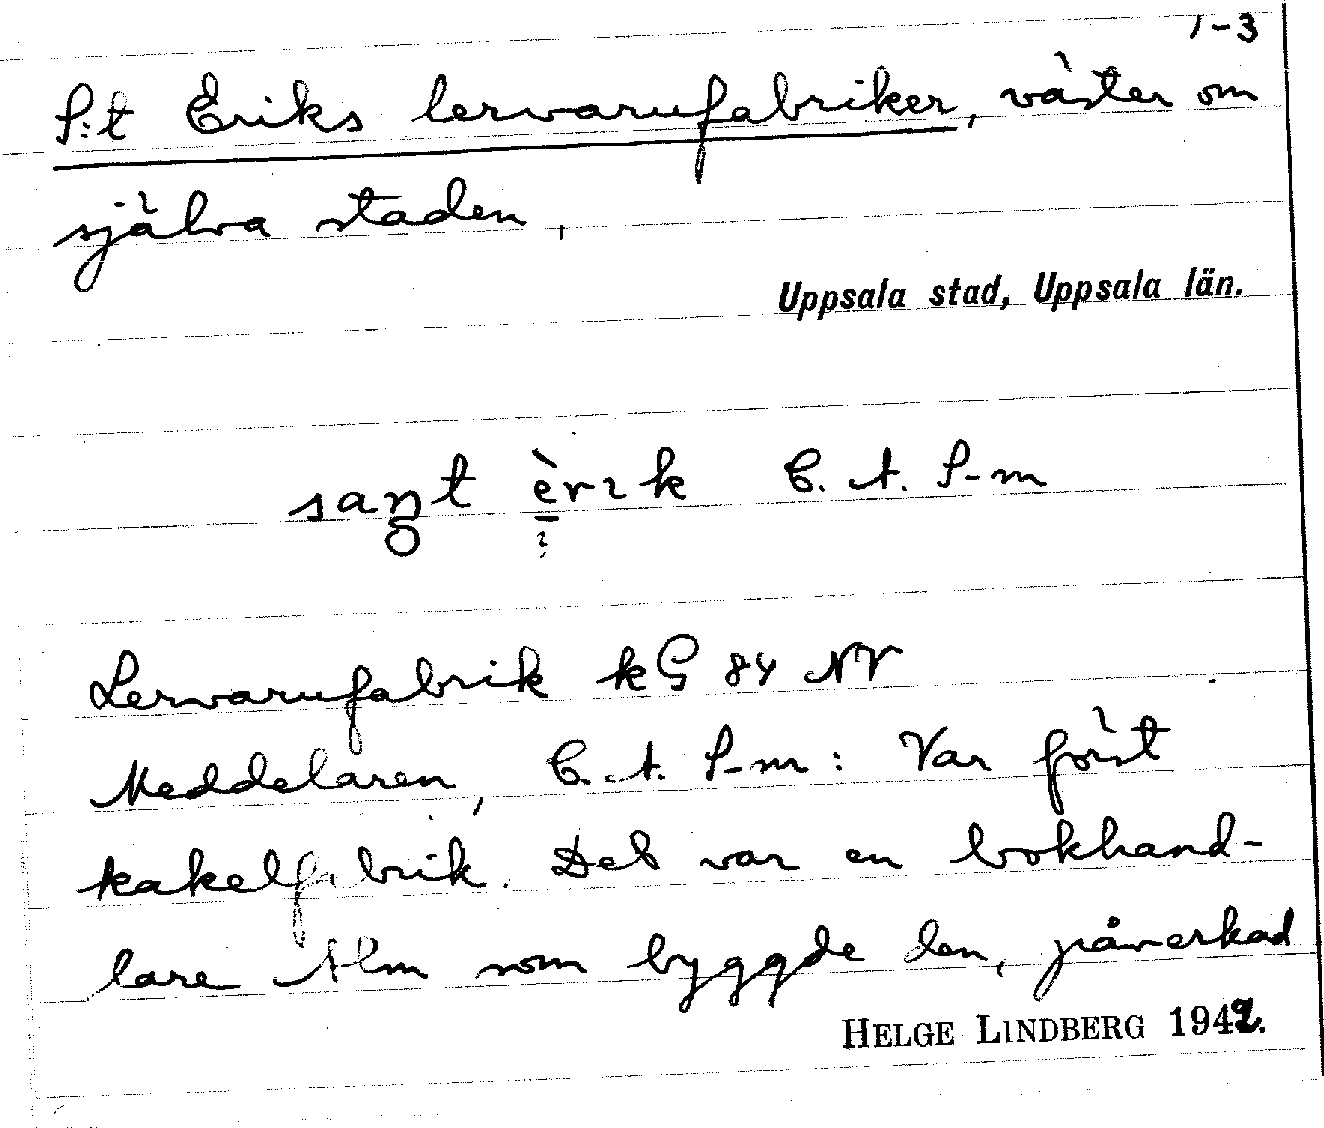 1-3
S:t Eriks lervarufabriker, väster om
själva staden,
Uppsala stad, Uppsala län.
saŋ̥t èrık C. A. S-m
?
Lervarufabrik kG 84 NV
Meddelaren, C. A. S-m: Var först
kakelfabrik. Det var en bokhand-
lare Alm som byggde den, påverkad
HELGE LINDBERG 1942.